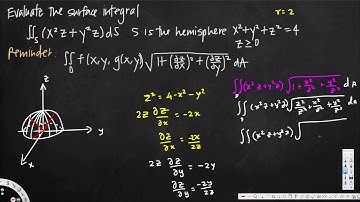 Evaluate the surface integral r = 2
∬_S (x²z + y²z) dS S is the hemisphere x² + y² + z² = 4
z ≥ 0
Reminder:
∬_D f(x, y, g(x,y)) √(1 + (∂z/∂x)² + (∂z/∂y)²) dA
z
y
x
z² = 4 - x² - y²
2z ∂z/∂x = -2x
∂z/∂x = -2x/2z
2z ∂z/∂y = -2y
∂z/∂y = -2y/2z
∬_D (x²z + y²z) √(1 + x²/z² + y²/z²) dA
∬_D (x²z + y²z) √(z²/z² + x²/z² + y²/z²) dA
∬_D (x²z + y²z) √